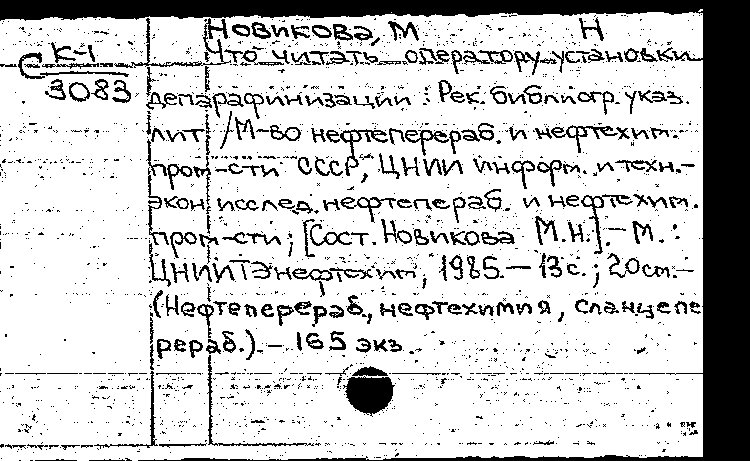 Новикова, М Н
С К-1 Что читать оператору установки
3083 депарафинизации : Рек. библиогр. указ.
лит /М-во нефтеперераб. и нефтехим.
пром-сти СССР, ЦНИИ информ. и техн.-
экон исслед. нефтеперераб. и нефтехим.
пром-сти; [Сост. Новикова М.Н.]. – М. :
ЦНИИТЭнефтехим, 1985. – 13 с. ; 20 см. –
(Нефтеперераб., нефтехимия, сланцепе
рераб.). – 165 экз.